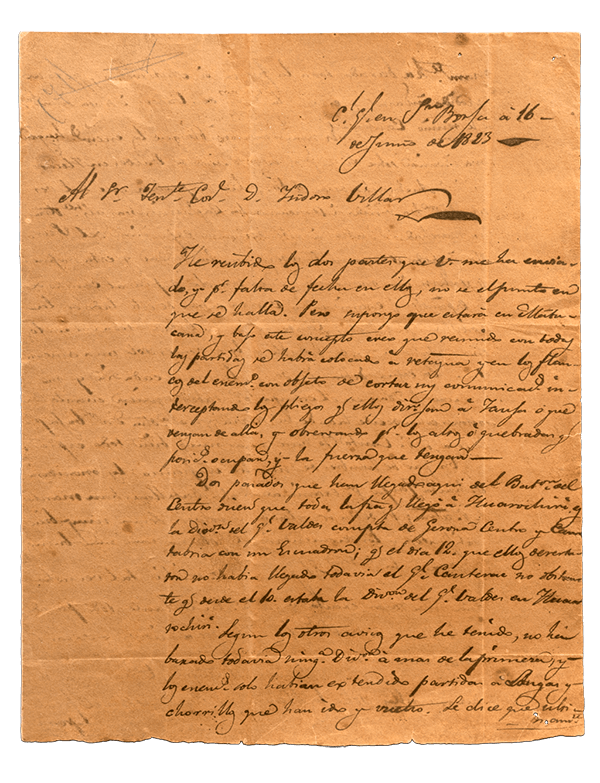 C.l G.l en Borja à 16
de Junio de 1823
Al Sr. Ten.te Cor.l D. Isidoro Villar
He recibido los dos partes que V. me ha envia-
do, y p.r falta de fecha en ellos, no se el punto en
que se halla. Pero supongo que estará en Matu-
cana, y bajo este concepto creo que reunido con todas
las partidas se habrá colocado à retaguar.a y en los flan-
cos del enem.o con objeto de cortar sus comunicac.s in-
terceptando los pliegos q.e ellos dirijan à Jauja ò que
vengan de alla, y observando p.r los altos ò quebradas q.e
posic.n ocupan, y la fuerza que tengan
Dos pasados que han llegado aqui del Bat.n del
Centro dicen que toda la llegó à Huarochiri, q.e
la Divis.n del G.l Valdes compta de Gerona Centro y Can-
tabria con un Escuadron; q.e el dia 12 que ellos deserta-
ron no habia llegado todavia el G.l Canterac no obstan-
te q.e desde el 10 estaba la Divis.n del G.l Valdes en Huaro-
chiri.
Segun los otros avisos que he tenido, no han
bajado todavia ning.a Divis.n à mas de la primera, y
los enem.s solo habian extendido partidas à Lurin y
Chorrillos que han ido y vuelto. Se dice que